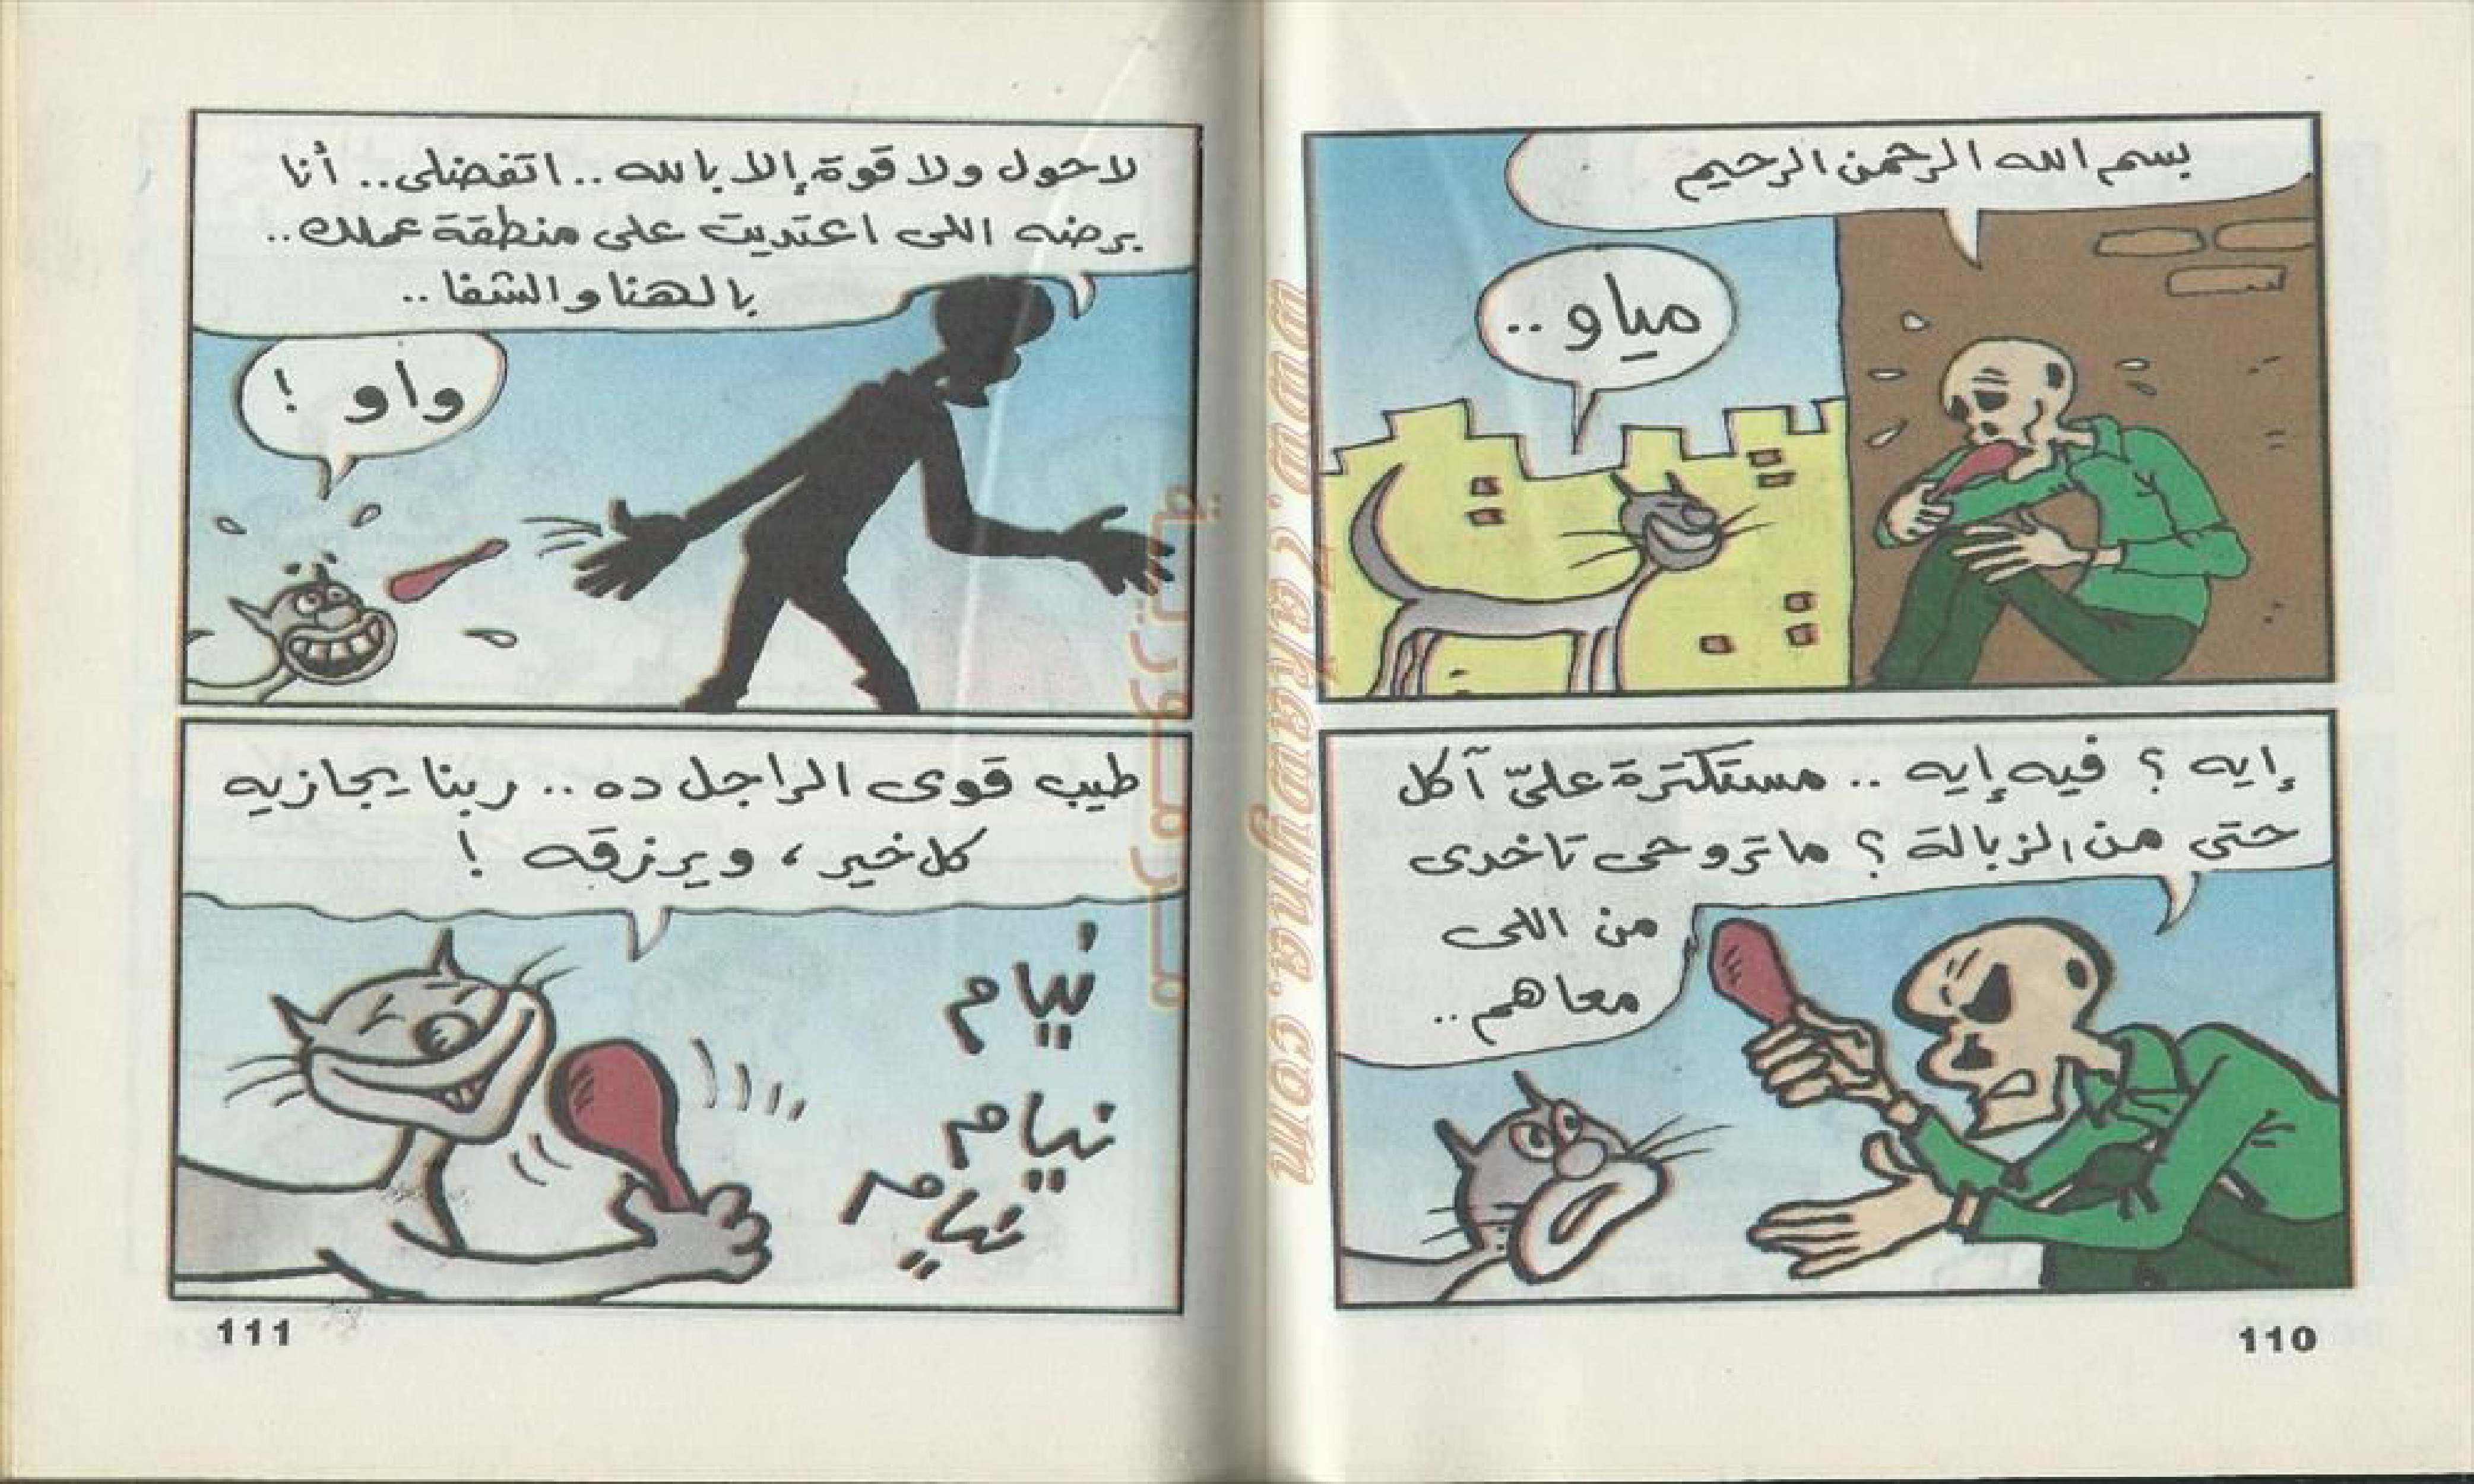 بسم الله الرحمن الرحيم
مياو ..
إيه ؟ فيه إيه .. مستكترة عليّ آكل
حتى من الزبالة ؟ ما تروحى تاخدى
من اللى
معاهم ..
110
لا حول ولا قوة إلا بالله .. اتفضلى .. أنا
برضه اللى اعتديت على منطقة عملك ..
بالهنا والشفا ..
واو !
طيب قوى الراجل ده .. ربنا يجازيه
كل خير ، ويرزقه !
نيام
نيام
نيام
111
www.2akawyna.com